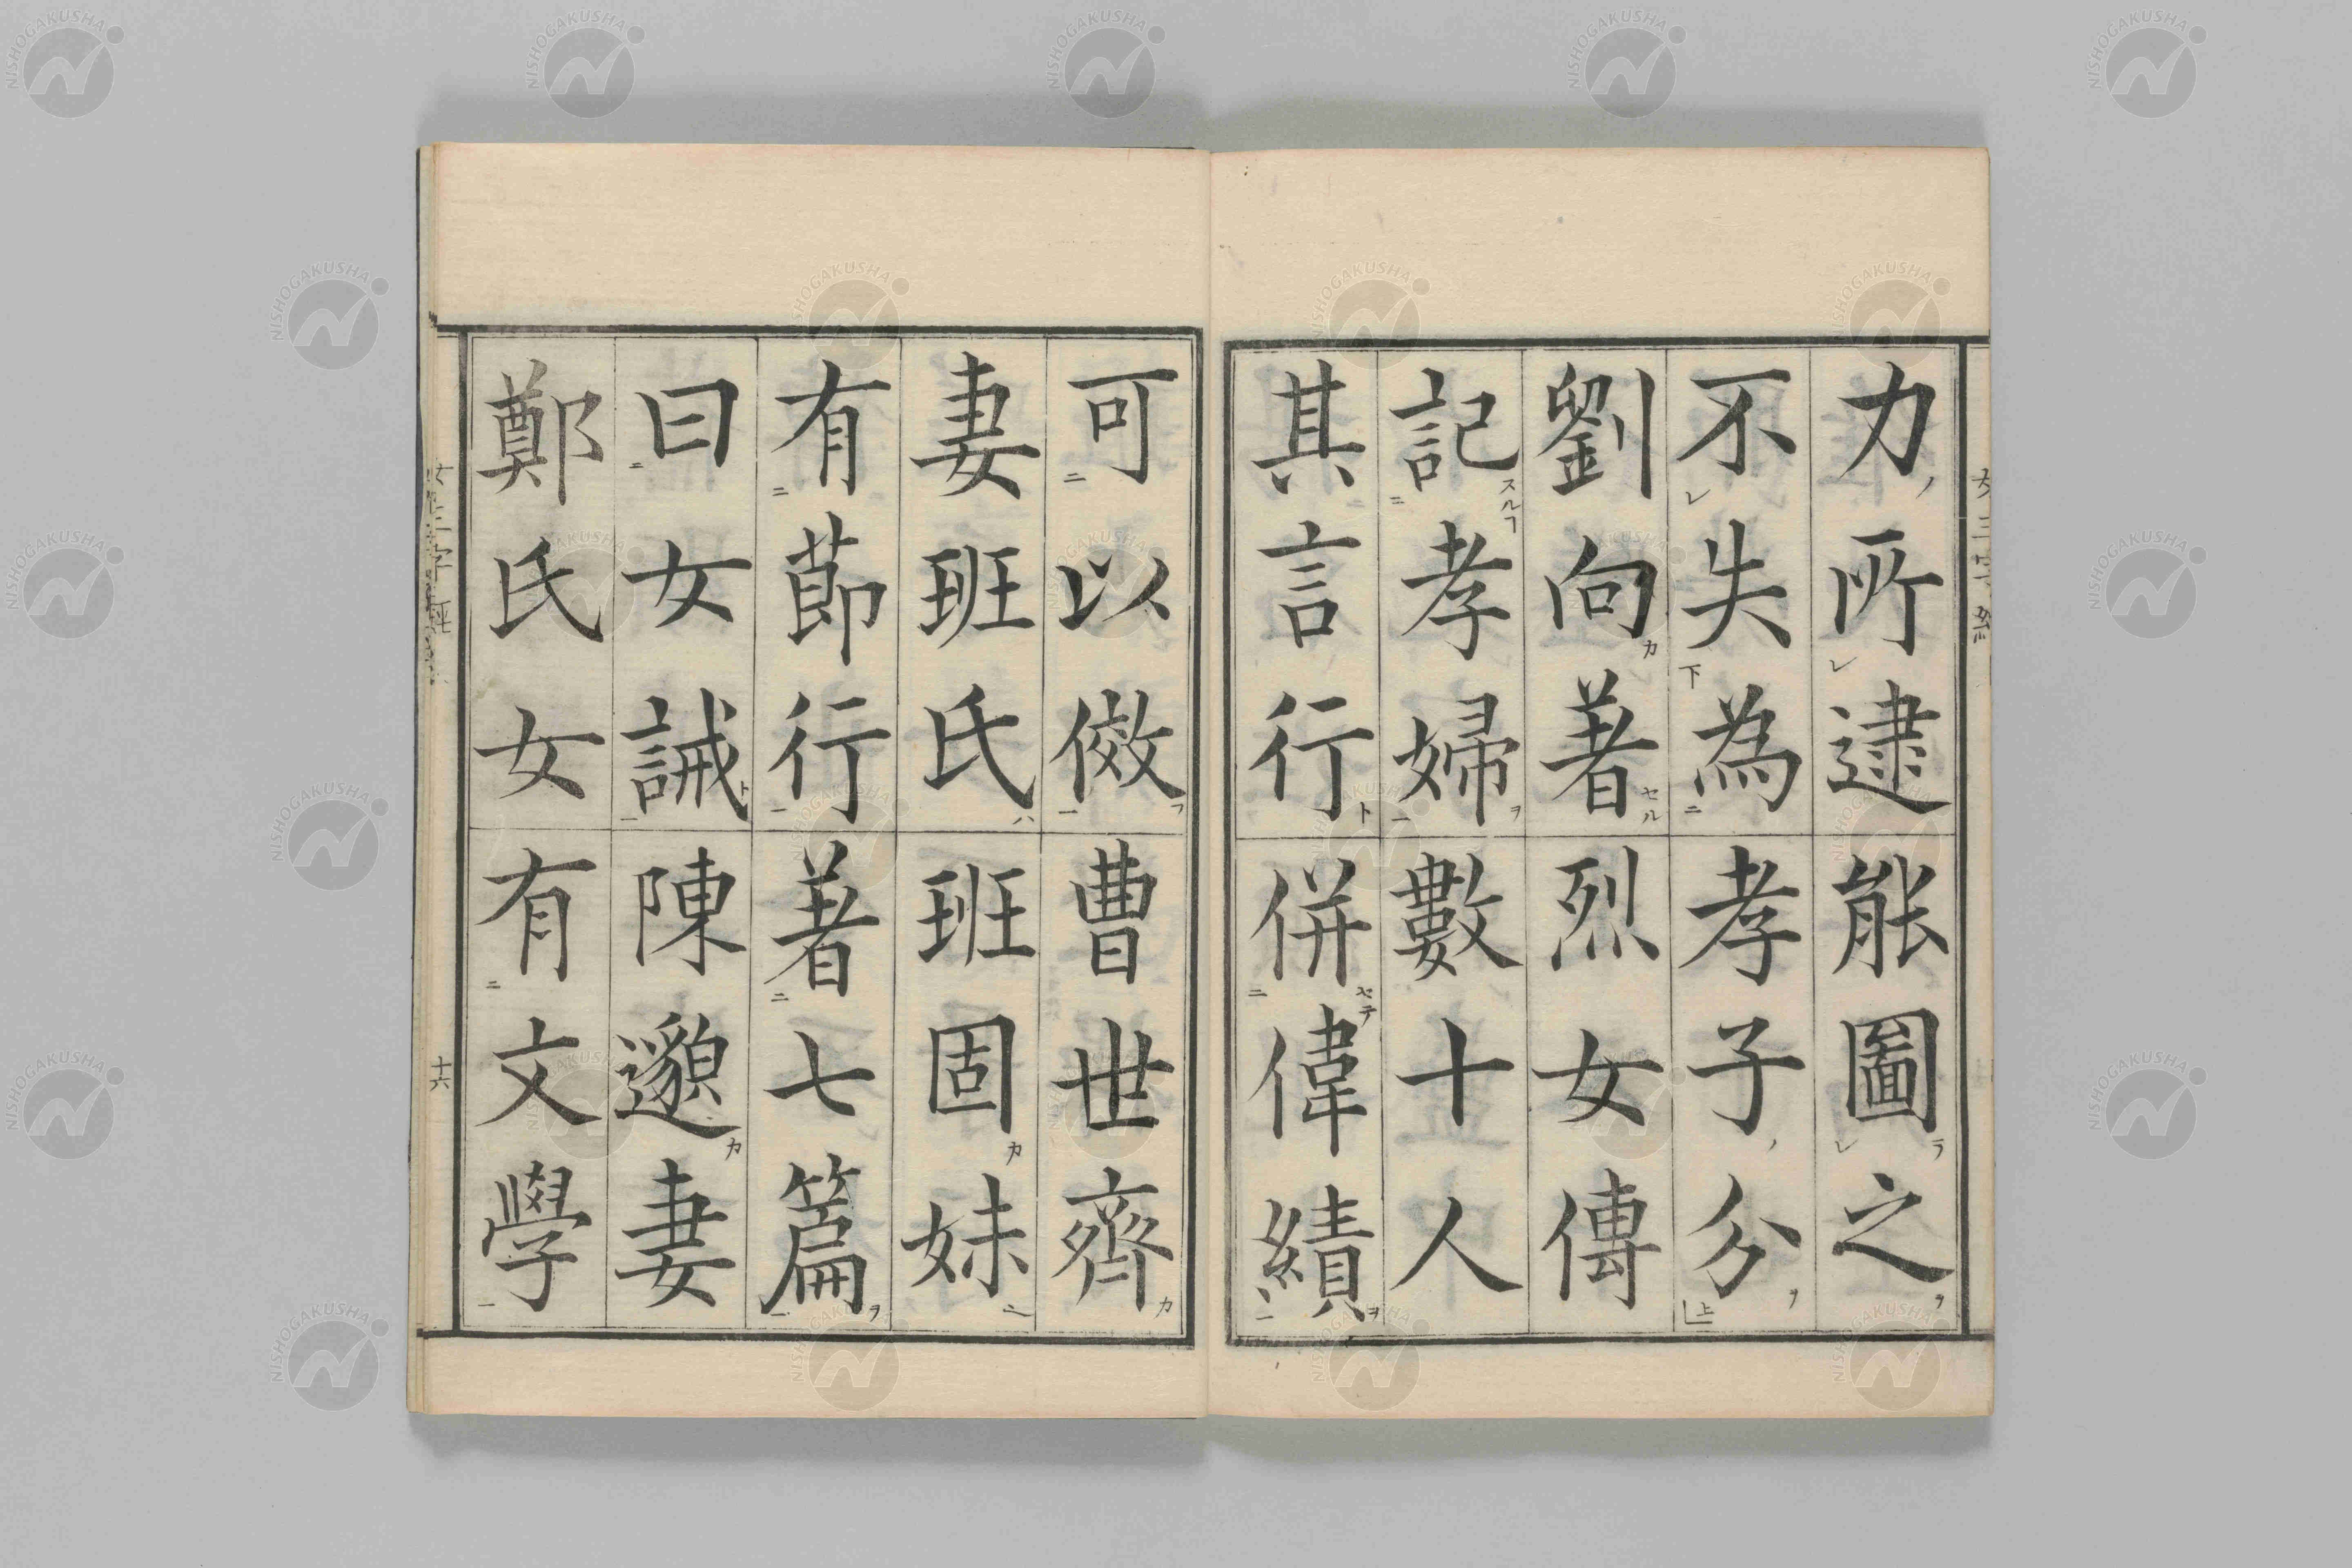 力所逮能圖之
不失為孝子分
劉向著烈女傳
記孝婦數十人
其言行併偉績
可以傚曹世齊
妻班氏班固妹
有節行著七篇
曰女誡陳邈妻
鄭氏女有文學
十六
NISHOGAKUSHA